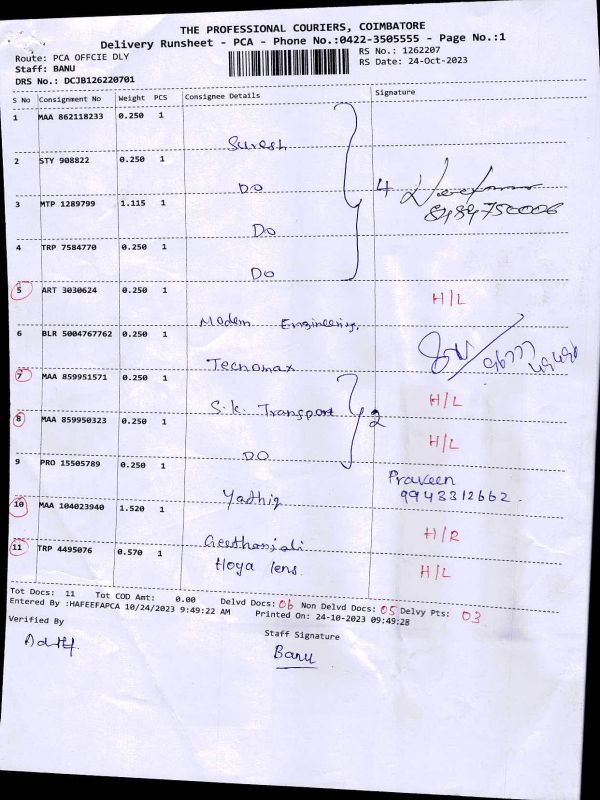 THE PROFESSIONAL COURIERS, COIMBATORE
Delivery Runsheet - PCA - Phone No.:0422-3505555 - Page No.:1
Route: PCA OFFCIE DLY
RS No.: 1262207
Staff: BANU
RS Date: 24-Oct-2023
DRS No.: DCJB126220701
S No Consignment No Weight PCS Consignee Details Signature
1 MAA 862118233 0.250 1
Suresh
2 STY 908822 0.250 1
DO
4
3 MTP 1289799 1.115 1
Do
4 TRP 7584770 0.250 1
Do
5 ART 3030624 0.250 1 H/L
Modern Engineering.
6 BLR 5004767762 0.250 1
Tecnomax
7 MAA 859951571 0.250 1 H/L
S.k. Transport 2
8 MAA 859950323 0.250 1 H/L
DO
9 PRO 15505789 0.250 1 Praveen
9943312662.
Yathiq
10 MAA 104023940 1.520 1 H/R
Geethanjali
11 TRP 4495076 0.570 1 H/L
Hoya lens
Tot Docs: 11 Tot COD Amt: 0.00 Delvd Docs: 06 Non Delvd Docs: 05 Delvy Pts: 03
Entered By :HAFEEFAPCA 10/24/2023 9:49:22 AM Printed On: 24-10-2023 09:49:28
Verified By Staff Signature
Banu